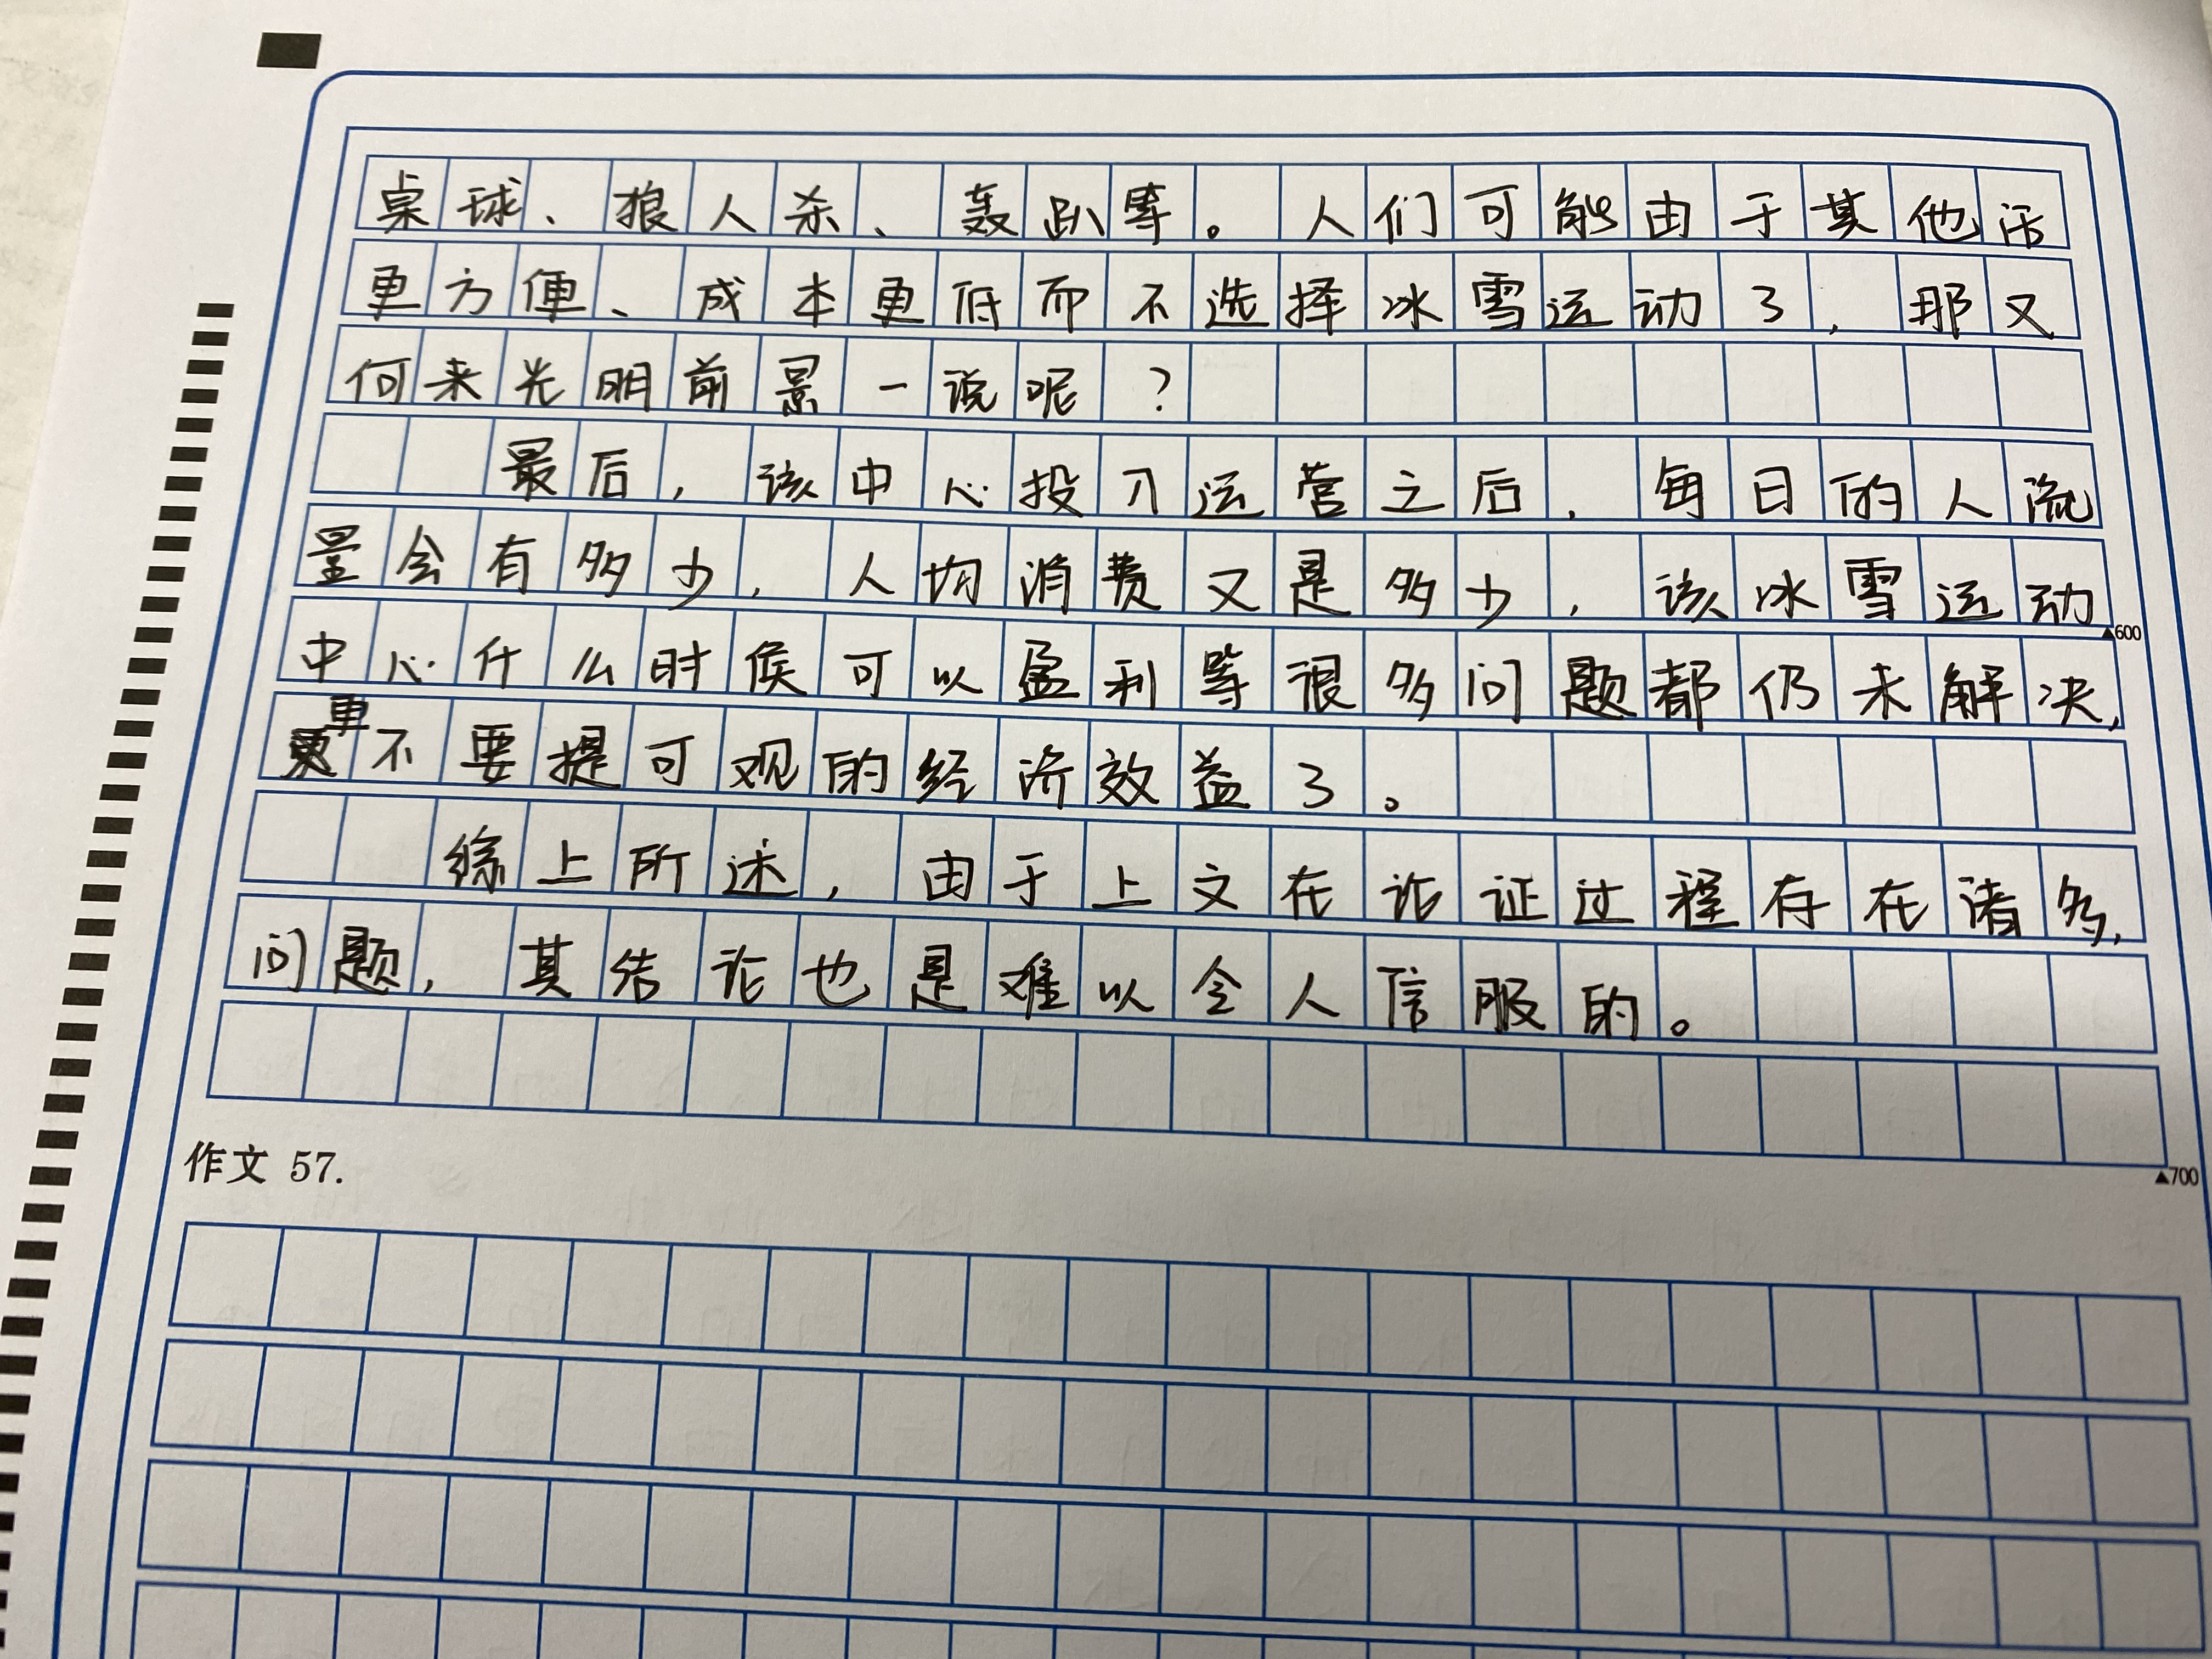 桌球、狼人杀、轰趴等。人们可能由于其他活
更方便、成本更低而不选择冰雪运动了，那又
何来光明前景一说呢？
最后，该中心投入运营之后，每日的人流
量会有多少，人均消费又是多少，该冰雪运动
▲600
中心什么时候可以盈利等很多问题都仍未解决，
更不要提可观的经济效益了。
综上所述，由于上文在论证过程存在诸多，
问题，其结论也是难以令人信服的。
作文 57.
▲700